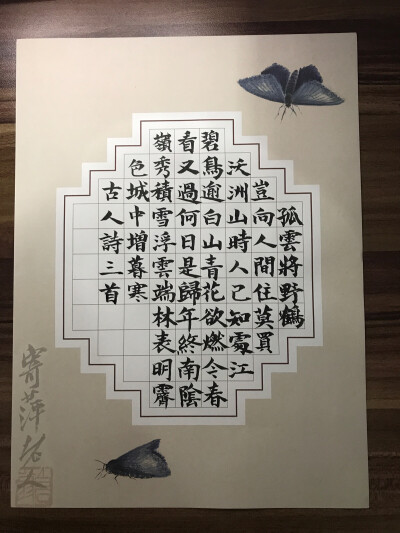 孤雲將野鶴
豈向人間住莫買
沃洲山時人已知處江
碧鳥逾白山青花欲燃今春
看又過何日是歸年終南陰
嶺秀積雪浮雲端林表明霽
色城中增暮寒
古人詩三首
寄萍老人